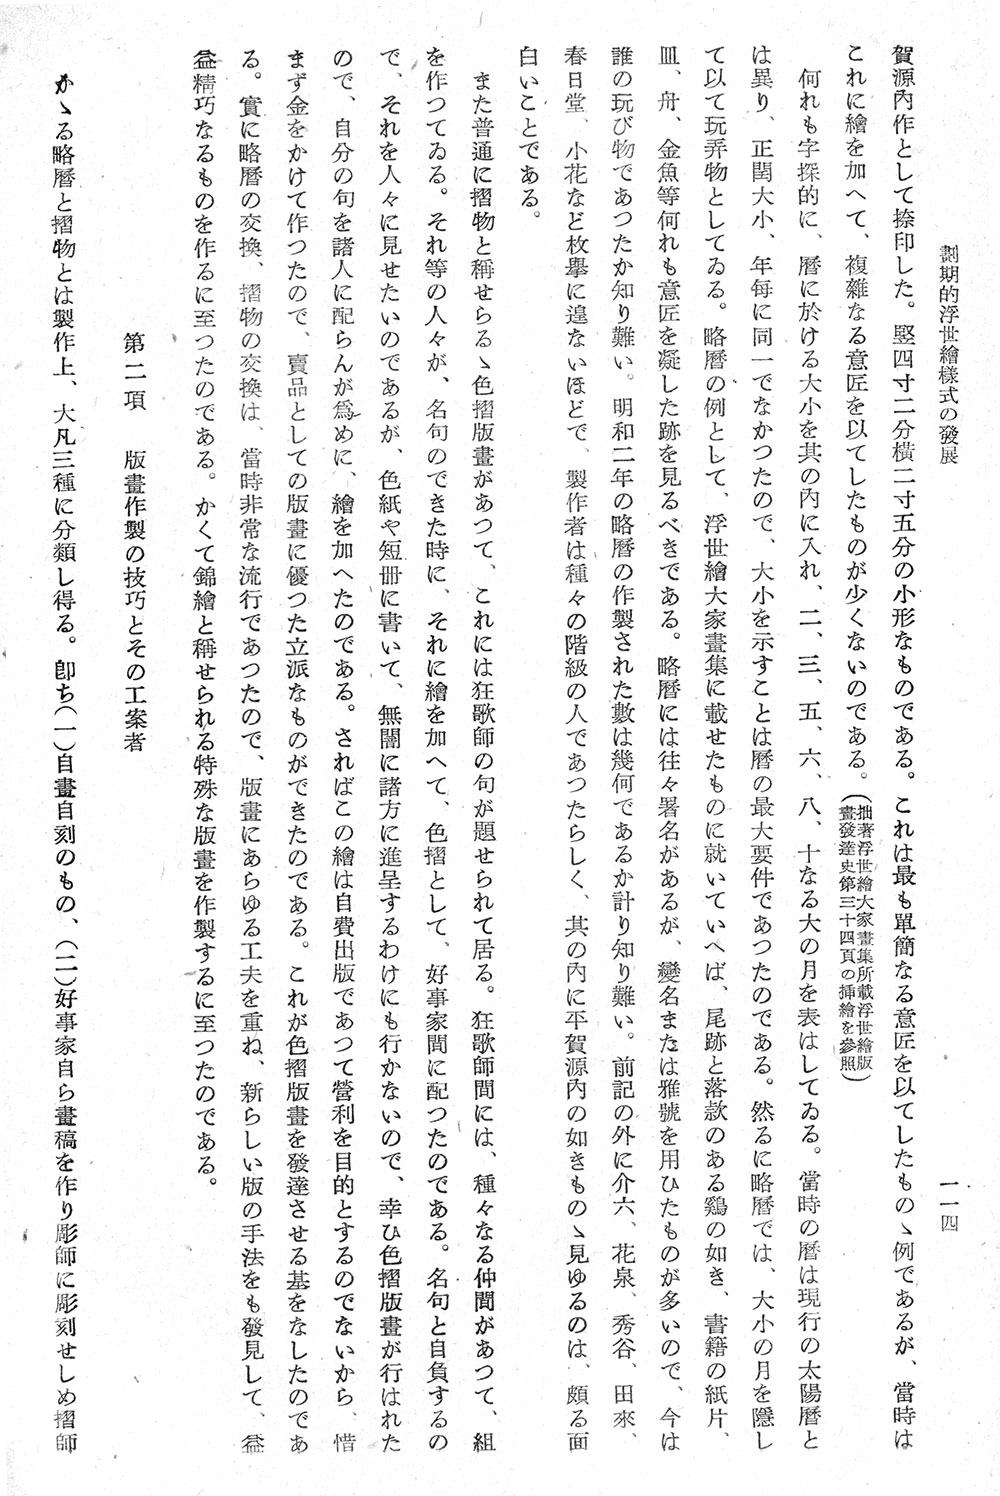 劃期的浮世繪樣式の發展
一一四
賀源內作として捺印した。竪四寸二分橫二寸五分の小形なものである。これは最も單簡なる意匠を以てしたものゝ例であるが、當時は
これに繪を加へて、複雜なる意匠を以てしたものが少くないのである。(拙著浮世繪大家畫集所載浮世繪版
畫發達史第三十四頁の挿繪を參照)
何れも字探的に、曆に於ける大小を其の內に入れ、二、三、五、六、八、十なる大の月を表はしてゐる。當時の曆は現行の太陽曆と
は異り、正閏大小、年每に同一でなかつたので、大小を示すことは曆の最大要件であつたのである。然るに略曆では、大小の月を隱し
て以て玩弄物としてゐる。略曆の例として、浮世繪大家畫集に載せたものに就いていへば、尾跡と落款のある鷄の如き、書籍の紙片、
皿、舟、金魚等何れも意匠を凝した跡を見るべきである。略曆には往々署名があるが、變名または雅號を用ひたものが多いので、今は
誰の玩び物であつたか知り難い。明和二年の略曆の作製された數は幾何であるか計り知り難い。前記の外に介六、花泉、秀谷、田來、
春日堂、小花など枚擧に遑ないほどで、製作者は種々の階級の人であつたらしく、其の內に平賀源內の如きものゝ見ゆるのは、頗る面
白いことである。
また普通に摺物と稱せらるゝ色摺版畫があつて、これには狂歌師の句が題せられて居る。狂歌師間には、種々なる仲間があつて、組
を作つてゐる。それ等の人々が、名句のできた時に、それに繪を加へて、色摺として、好事家間に配つたのである。名句と自負するの
で、それを人々に見せたいのであるが、色紙や短册に書いて、無闇に諸方に進呈するわけにも行かないので、幸ひ色摺版畫が行はれた
ので、自分の句を諸人に配らんが爲めに、繪を加へたのである。さればこの繪は自費出版であつて營利を目的とするのでないから、惜
まず金をかけて作つたので、賣品としての版畫に優つた立派なものができたのである。これが色摺版畫を發達させる基をなしたのであ
る。實に略曆の交換、摺物の交換は、當時非常な流行であつたので、版畫にあらゆる工夫を重ね、新らしい版の手法をも發見して、益
益精巧なるものを作るに至つたのである。かくて錦繪と稱せられる特殊な版畫を作製するに至つたのである。
第二項 版畫作製の技巧とその工案者
かゝる略曆と摺物とは製作上、大凡三種に分類し得る。卽ち(一)自畫自刻のもの、(二)好事家自ら畫稿を作り彫師に彫刻せしめ摺師